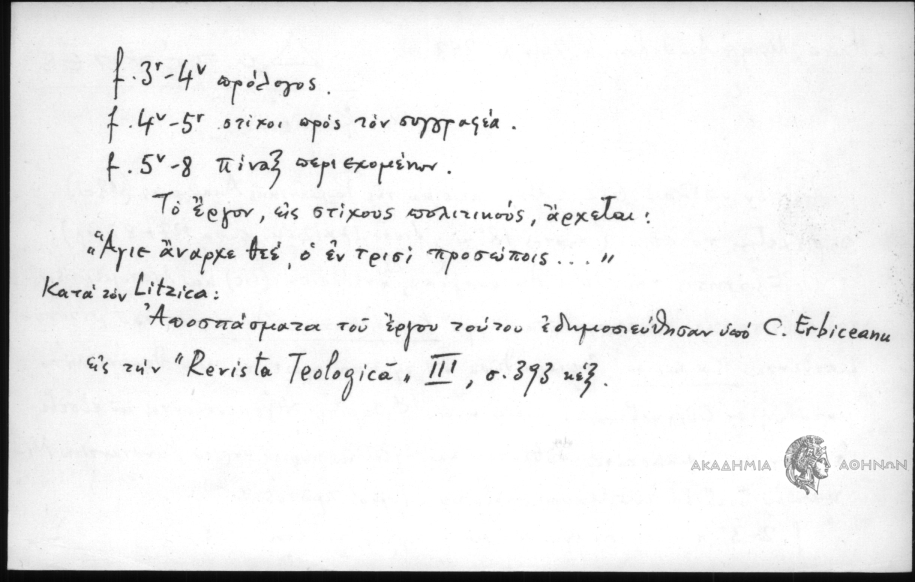 f. 3r-4v πρόλογος.
f. 4v-5r στίχοι πρός τόν συγγραφέα.
f. 5v-8 πίναξ περιεχομένων.
Τό ἔργον, εἰς στίχους πολιτικούς, ἄρχεται:
"Ἅγιε ἄναρχε θεέ, ὁ ἐν τρισί προσώποις..."
Κατά τόν Litzica:
Ἀποσπάσματα τοῦ ἔργου τούτου ἐδημοσιεύθησαν ὑπό C. Erbiceanu
εἰς τήν "Revista Teologică" III, σ. 393 κἑξ.
ΑΚΑΔΗΜΙΑ ΑΘΗΝΩΝ